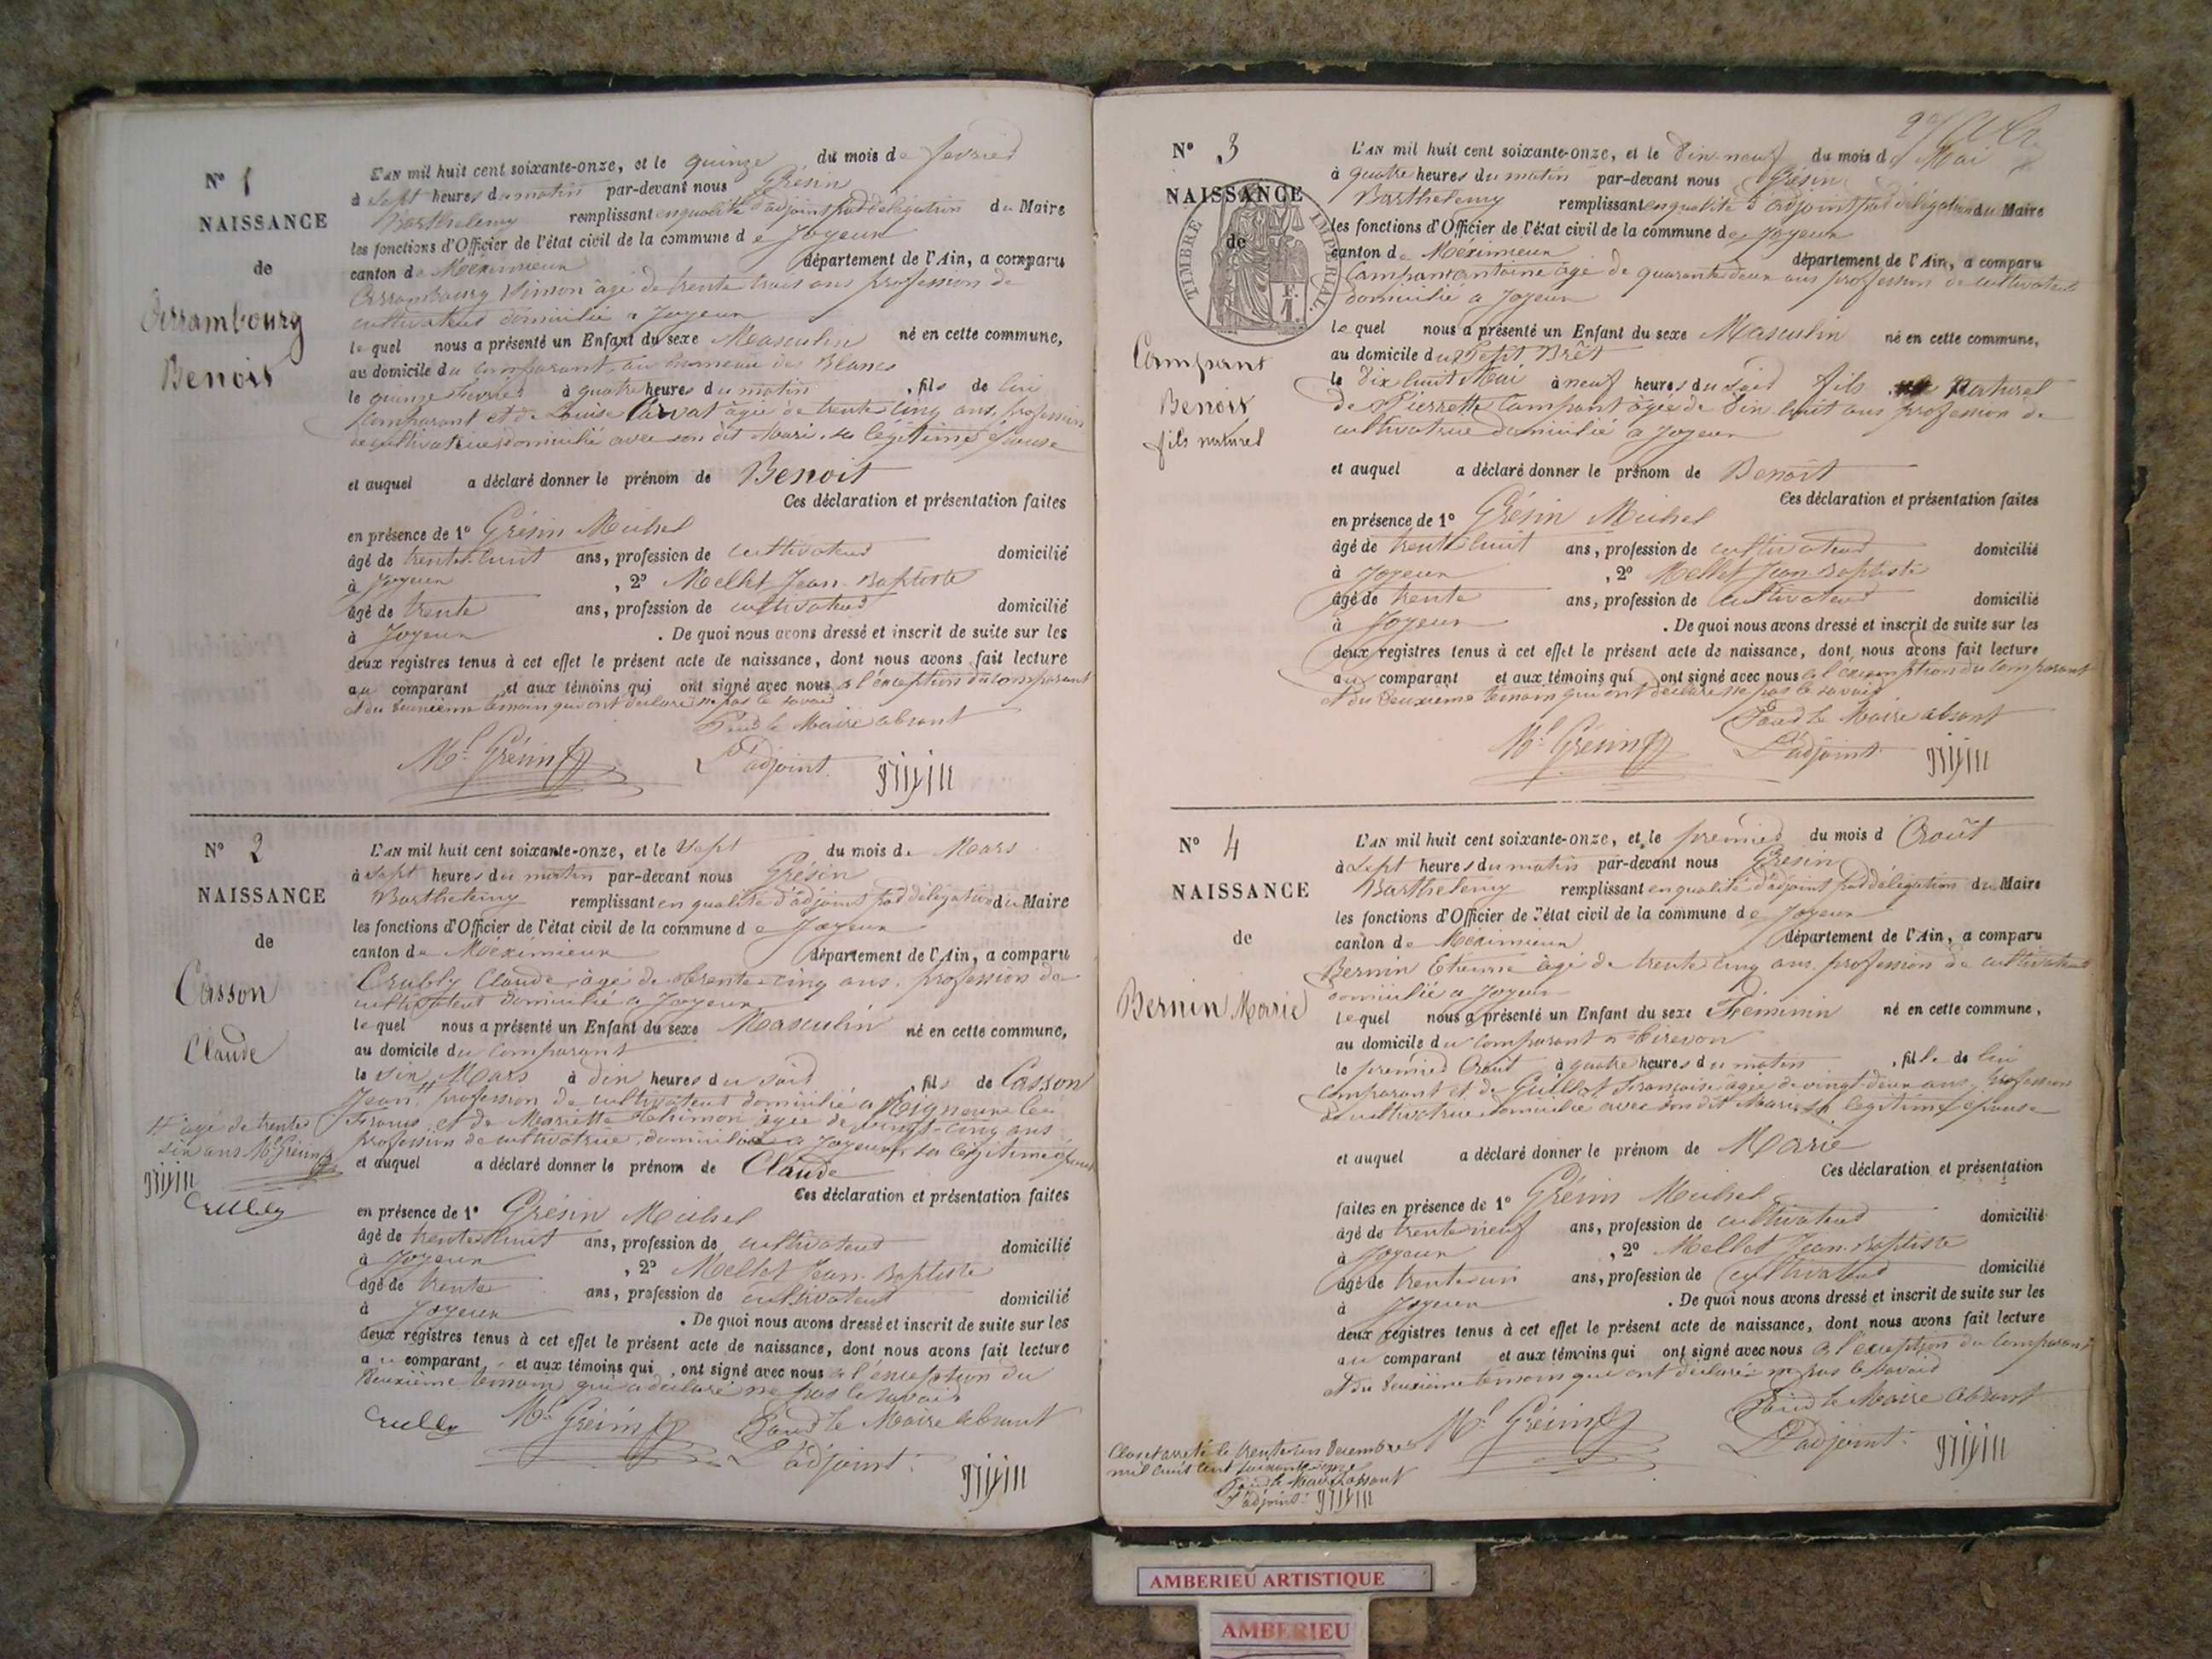 N° 1
NAISSANCE
de
Arrambourg
Benoit
L'AN mil huit cent soixante-onze, et le quinze du mois de fevrier
à Sept heures du matin par-devant nous Grésin
Barthelemy remplissant en qualité d'adjoint par délégation du Maire
les fonctions d'Officier de l'état civil de la commune de Joyeux
canton de Méximieux département de l'Ain, a comparu
Arrambourg Simon âgé de trente trois ans profession de
cultivateur domicilié a Joyeux
lequel nous a présenté un Enfant du sexe Masculin né en cette commune,
au domicile du comparant, au hameau des Blancs
le quinze Fevrier à quatre heures du matin, fils de lui
Comparant et de Louise âgée de trente cinq ans, profession
de cultivatrice domicilié avec son dit Mari, sa légitime épouse
et auquel a déclaré donner le prénom de Benoit
Ces déclaration et présentation faites
en présence de 1° Grésin Michel
âgé de trente-huit ans, profession de cultivateur domicilié
à Joyeux, 2° Mellet Jean-Baptiste
âgé de trente ans, profession de cultivateur domicilié
à Joyeux. De quoi nous avons dressé et inscrit de suite sur les
deux registres tenus à cet effet le présent acte de naissance, dont nous avons fait lecture
au comparant et aux témoins qui ont signé avec nous a l'exception du comparant
et du deuxième témoin qui ont déclaré ne pas le savoir
Pour le Maire absent
Ml Grésin L'adjoint
N° 2
NAISSANCE
de
Casson
Claude
L'AN mil huit cent soixante-onze, et le Sept du mois de Mars
à Sept heures du matin par-devant nous Grésin
Barthelemy remplissant en qualité d'adjoint par délégation du Maire
les fonctions d'Officier de l'état civil de la commune de Joyeux
canton de Méximieux département de l'Ain, a comparu
Crubly Claude, âgé de trente-cinq ans, profession de
cultivateur domicilié a Joyeux
lequel nous a présenté un Enfant du sexe Masculin né en cette commune,
au domicile du Comparant
le six Mars à dix heures du soir, fils de Casson
Jean # profession de cultivateur domicilié a
et de Mariette âgée de vingt-cinq ans
profession de cultivatrice, domiciliée a Joyeux, sa légitime épouse
# agé de trente
six ans Ml Grésin
et auquel a déclaré donner le prénom de Claude
Ces déclaration et présentation faites
en présence de 1° Grésin Michel
âgé de trente huit ans, profession de cultivateur domicilié
à Joyeux, 2° Mellet Jean-Baptiste
âgé de trente ans, profession de cultivateur domicilié
à Joyeux. De quoi nous avons dressé et inscrit de suite sur les
deux registres tenus à cet effet le présent acte de naissance, dont nous avons fait lecture
au comparant et aux témoins qui ont signé avec nous a l'exception du
deuxième témoin qui a déclaré ne pas le savoir
Ml Grésin Pour le Maire absent
L'adjoint
N° 3
NAISSANCE
de
TIMBRE IMPERIAL
Campant
Benoit
fils naturel
L'AN mil huit cent soixante-onze, et le dix-neuf du mois de Mai
à quatre heures du matin par-devant nous Grésin
Barthelemy remplissant en qualité d'adjoint par délégation du Maire
les fonctions d'Officier de l'état civil de la commune de Joyeux
canton de Méximieux département de l'Ain, a comparu
Campant Antoine âgé de quarante deux ans profession de cultivateur
domicilié a Joyeux
lequel nous a présenté un Enfant du sexe Masculin né en cette commune,
au domicile du Petit Brét
le dix huit Mai à neuf heures du soir fils Naturel
de Pierrette Campant âgée de dix huit ans profession de
cultivatrice domicilié a Joyeux
et auquel a déclaré donner le prénom de Benoit
Ces déclaration et présentation faites
en présence de 1° Grésin Michel
âgé de trente huit ans, profession de cultivateur domicilié
à Joyeux, 2° Mellet Jean-Baptiste
âgé de trente ans, profession de cultivateur domicilié
à Joyeux. De quoi nous avons dressé et inscrit de suite sur les
deux registres tenus à cet effet le présent acte de naissance, dont nous avons fait lecture
au comparant et aux témoins qui ont signé avec nous a l'exemption du comparant
et du deuxième témoin qui ont déclaré ne pas le savoir
Pour le Maire absent
Ml Grésin L'adjoint
N° 4
NAISSANCE
de
Bernin Marie
L'AN mil huit cent soixante-onze, et le premier du mois d Août
à Sept heures du matin par-devant nous Grésin
Barthelemy remplissant en qualité d'adjoint par délégation du Maire
les fonctions d'Officier de l'état civil de la commune de Joyeux
canton de Méximieux département de l'Ain, a comparu
Bernin Etienne âgé de trente cinq ans profession de cultivateur
domicilié a Joyeux
lequel nous a présenté un Enfant du sexe Féminin né en cette commune,
au domicile du comparant a
le premier Août à quatre heures du matin, fille de lui
comparant et de Guillot Françoise âgée de vingt-deux ans, profession
de cultivatrice domicilié avec son dit Mari, sa légitime épouse
et auquel a déclaré donner le prénom de Marie
Ces déclaration et présentation
faites en présence de 1° Grésin Michel
âgé de trente neuf ans, profession de cultivateur domicilié
à Joyeux, 2° Mellet Jean-Baptiste
âgé de trente un ans, profession de cultivateur domicilié
à Joyeux. De quoi nous avons dressé et inscrit de suite sur les
deux registres tenus à cet effet le présent acte de naissance, dont nous avons fait lecture
au comparant et aux témoins qui ont signé avec nous a l'exception du comparant
et du deuxième témoin qui ont déclaré ne pas le savoir
Pour le Maire absent
Ml Grésin L'adjoint
Clos et arreté le trente un decembre
mil huit cent soixante onze
Pour le Maire absent
L'adjoint
AMBERIEU ARTISTIQUE
AMBERIEU